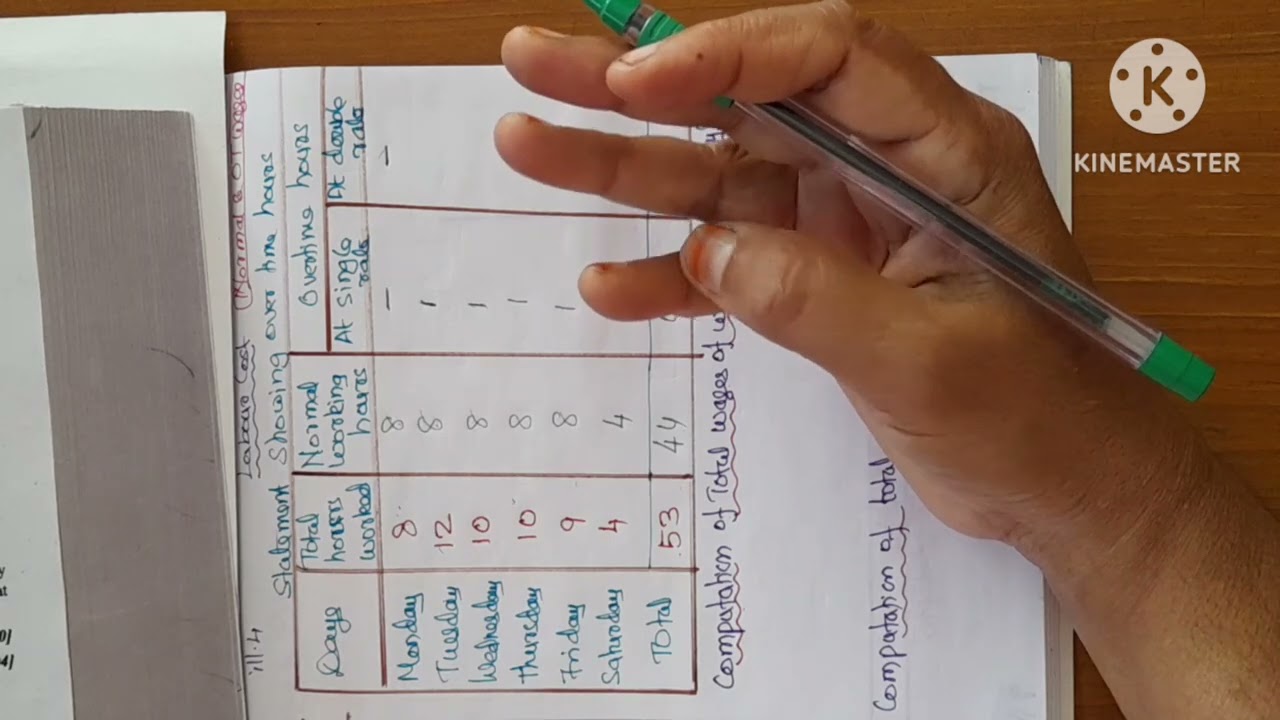 ill.4 Labour Cost (Normal & OT wages
Statement Showing over time hours
Days
Total hours worked
Normal working hours
Overtime hours
At single rate
At double rate
Monday 8 8 - -
Tuesday 12 8 1
Wednesday 10 8 1
Thursday 10 8 1
Friday 9 8 1
Saturday 4 4
Total 53 44
Computation of Total wages of
Computation of total
K
KINEMASTER